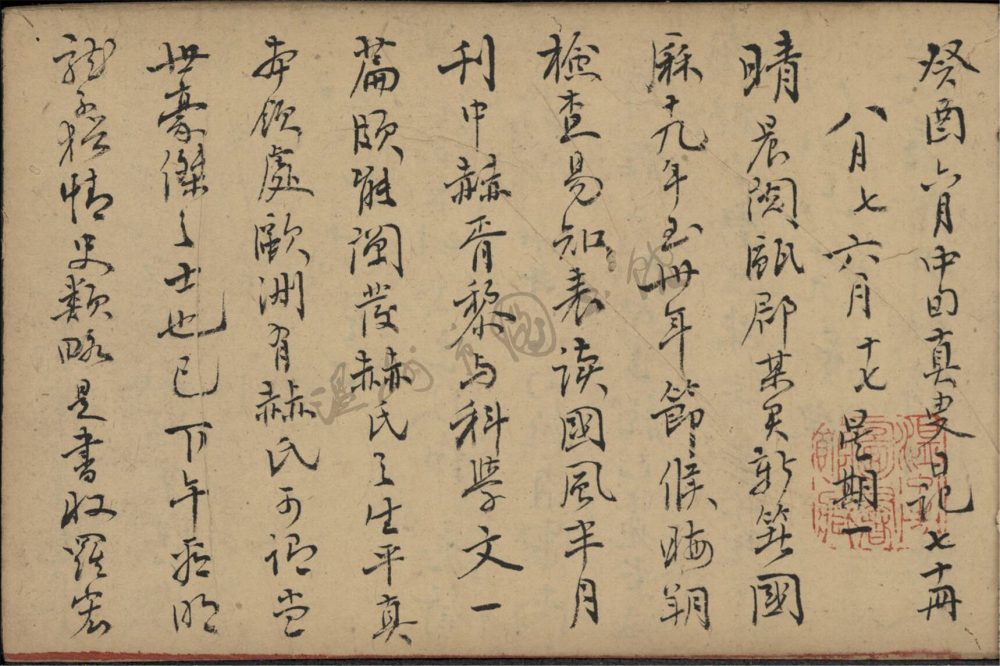 癸酉六月中 真叟日記七十冊
八月七 六月十七 星期一
晴 晨閱甌郡某 新 國
厤十九年至卅年節候晦朔
檢查易知表读國風半月
刊中赫胥黎与科學文一
篇頗能闡發赫氏之生平真
本領處歐洲有赫氏可謂當
世豪傑之士也已 下午 明
龍子猶情史類略是書收羅宏